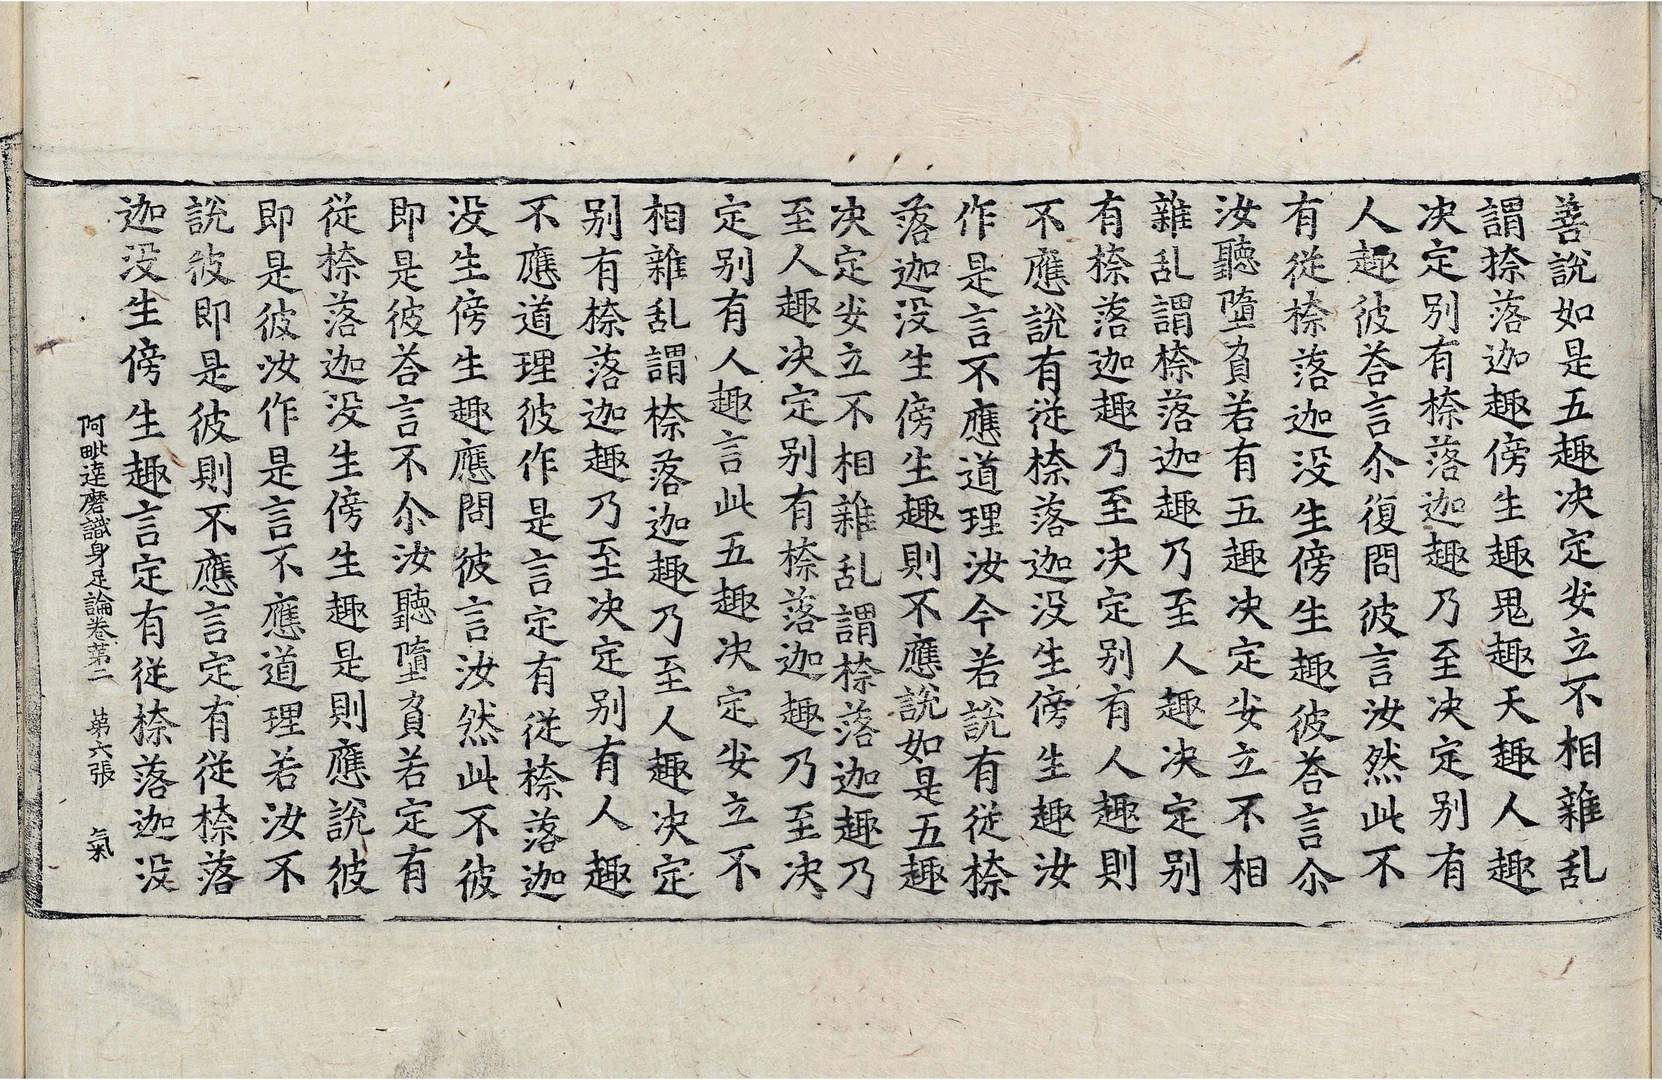 善說如是五趣决定安立不相雜乱
謂捺落迦趣傍生趣鬼趣天趣人趣
决定别有捺落迦趣乃至决定别有
人趣彼荅言尒復問彼言汝然此不
有從捺落迦没生傍生趣彼荅言尒
汝聽墮負若有五趣决定安立不相
雜乱謂捺落迦趣乃至人趣决定别
有捺落迦趣乃至决定别有人趣則
不應說有從捺落迦没生傍生趣汝
作是言不應道理汝今若說有從捺
落迦没生傍生趣則不應說如是五趣
决定安立不相雜乱謂捺落迦趣乃
至人趣决定别有捺落迦趣乃至决
定别有人趣言此五趣决定安立不
相雜乱謂捺落迦趣乃至人趣决定
别有捺落迦趣乃至决定别有人趣
不應道理彼作是言定有從捺落迦
没生傍生趣應問彼言汝然此不彼
即是彼荅言不尒汝聽墮負若定有
從捺落迦没生傍生趣是則應說彼
即是彼汝作是言不應道理若汝不
說彼即是彼則不應言定有從捺落
迦没生傍生趣言定有從捺落迦没
阿毗達磨識身足論卷第二 第六張 氣